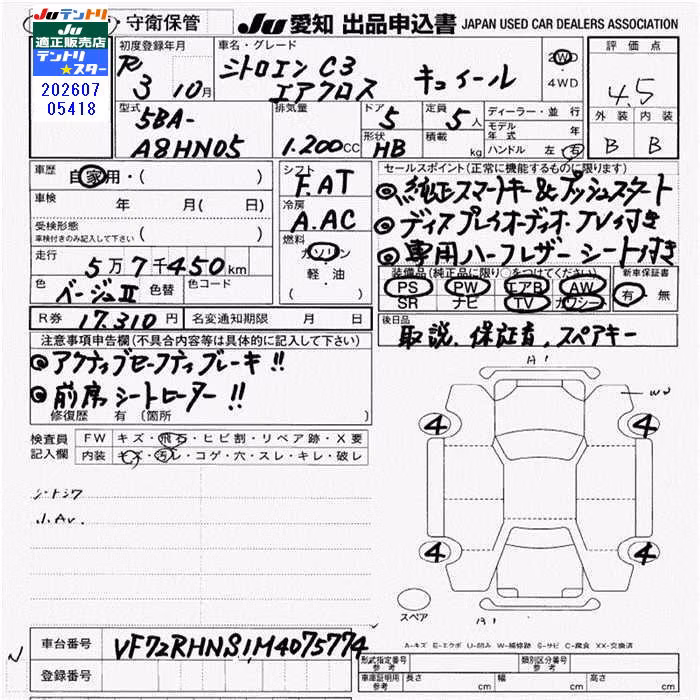 JUテントリ
JU
適正販売店
テントリ
★スター
202607
05418
守衛保管
JU 愛知 出品申込書 JAPAN USED CAR DEALERS ASSOCIATION
初度登録年月
R 3 10月
車名・グレード
シトロエン C3
エアクロス
2WD
・
4WD
評価点
4.5
外装 内装
B B
型式
5BA-
A8HN05
排気量
1.200cc
ドア
5
定員
5人
形状
HB
積載
kg
ディーラー・並行
モデル年式 年
ハンドル 左 右
車歴
自家用・( )
車検 年 月( 日)
受検形態
車検付きのみ記入して下さい ( )
走行
5万7千450km
色
ベージュII
色替
色コード
シフト
F.AT
冷房
A.AC
燃料
ガソリン
・
軽・油
( )
セールスポイント(正常に機能するものに限ります)
◎純正スマートキー&プッシュスタート
◎ディスプレイオーディオ・TV付き
◎専用ハーフレザーシート付き
装備品(純正品に限り○をつけてください)
PS PW エアB AW
SR ナビ TV カワシート
新車保証書
有・無
R券 17.310円
名変通知期限 月 日
後日品
取説.保証書.スペアキー
注意事項申告欄(不具合内容等は具体的に記入して下さい)
◎アクティブセーフティブレーキ!!
◎前席シートヒーター!!
修復歴 有(箇所 )
検査員
記入欄
FW キズ・飛石・ヒビ割・リペア跡・X要
内装 キズ・汚レ・コゲ・穴・スレ・キレ・破レ
シートシワ
小.AU.
A1
4
4
4
4
スペア
B1
A-キズ E-エクボ U-凹み W-補修跡 S-サビ C-腐食 XX-交換済
車台番号 VF72RHNS1M4075774
登録番号
形式指定番号
参考
類別区分番号
参考
車庫証明用
参考
長さ cm 幅 cm 高さ cm